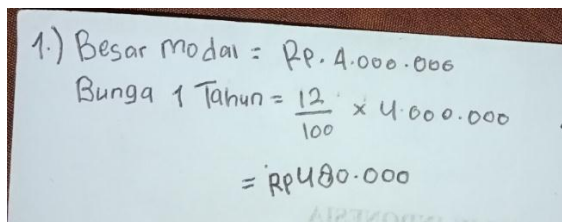 1.) Besar modal = Rp. 4.000.000
Bunga 1 Tahun = 12/100 × 4.000.000
= Rp480.000